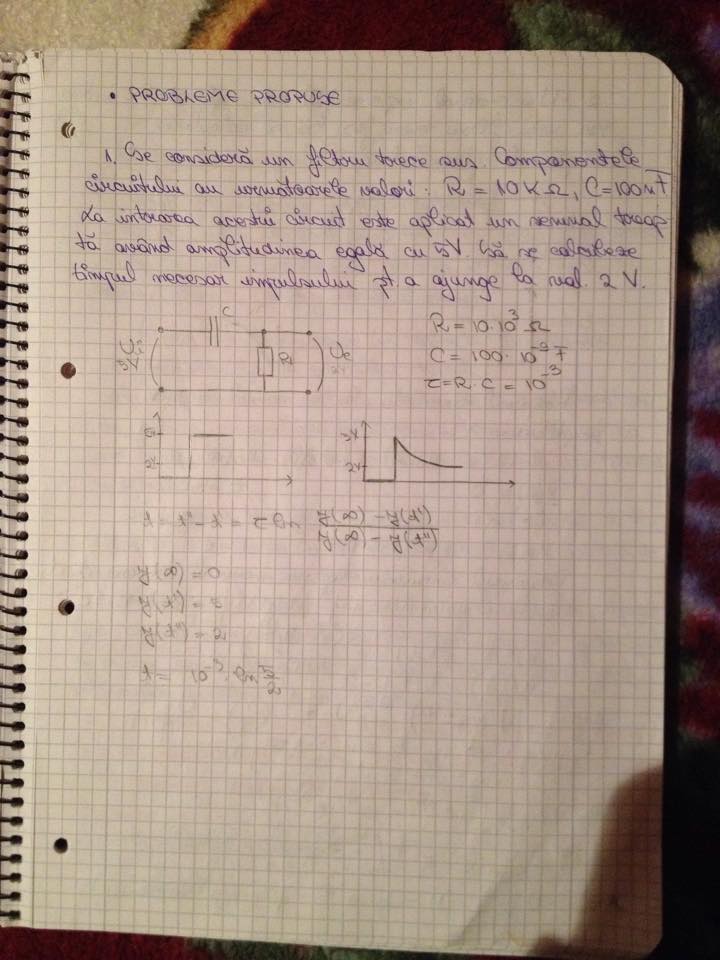 • PROBLEME PROPUSE
1. Se consideră un filtru trece sus. Componentele
circuitului au următoarele valori: R = 10 KΩ, C = 100 nF
La intrarea acestui circuit este aplicat un semnal treap-
tă având amplitudinea egală cu 5V. Să se calculeze
timpul necesar impulsului pt a ajunge la val. 2 V.
C
R = 10·10³ Ω
Ui
5V
R
Ue
C = 100·10⁻⁹ F
τ = R·C = 10⁻³
5v
2v
5v
2v
t = t'' - t' = τ ln y(∞) - y(t') / y(∞) - y(t'')
y(∞) = 0
y(t') = 5
y(t'') = 2
t = 10⁻³ · ln 5/2